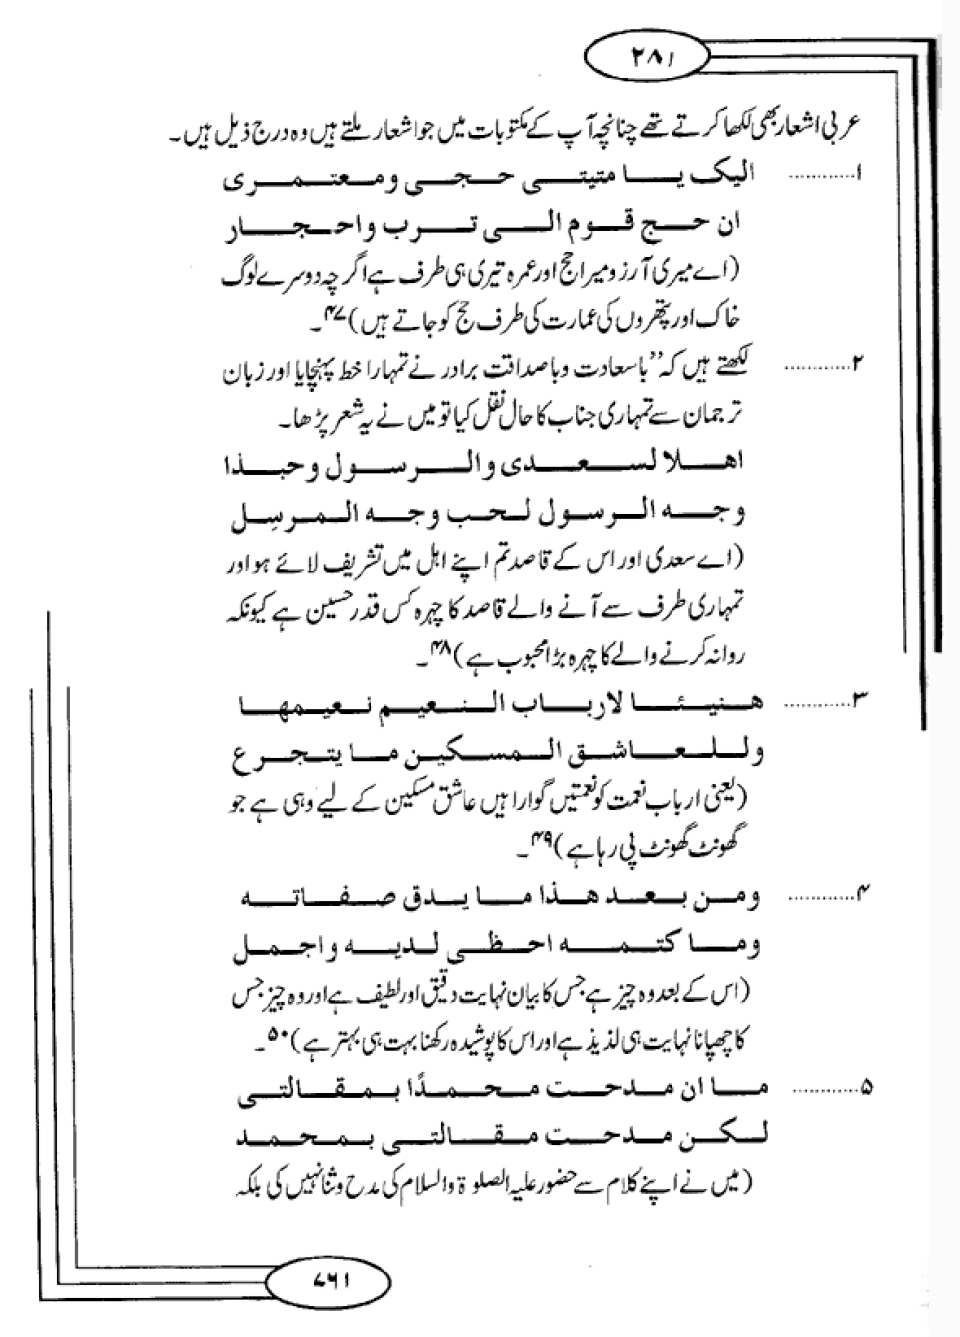 ۲۸۱
عربی اشعار بھی لکھا کرتے تھے چنانچہ آپ کے مکتوبات میں جو اشعار ملتے ہیں وہ درج ذیل ہیں۔
۱............ الیک یا متیتی حجی ومعتمری
ان حج قوم الی ترب واحجار
(اے میری آرزو میرا حج اور عمرہ تیری ہی طرف ہے اگرچہ دوسرے لوگ
خاک اور پتھروں کی عمارت کی طرف حج کو جاتے ہیں)۴۷۔
۲............ لکھتے ہیں کہ ’’باسعادت وباصداقت برادر نے تمہارا خط پہنچایا اور زبان
ترجمان سے تمہاری جناب کا حال نقل کیا تو میں نے یہ شعر پڑھا۔
اھلا لسعدی والرسول وحبذا
وجہ الرسول لحب وجہ المرسِل
(اے سعدی اور اس کے قاصد تم اپنے اہل میں تشریف لائے ہو اور
تمہاری طرف سے آنے والے قاصد کا چہرہ کس قدر حسین ہے کیونکہ
روانہ کرنے والے کا چہرہ بڑا محبوب ہے)۴۸۔
۳............ ھنیئا لارباب النعیم نعیمھا
وللعاشق المسکین ما یتجرع
(یعنی ارباب نعمت کو نعمتیں گوارا ہیں عاشق مسکین کے لیے وہی ہے جو
گھونٹ گھونٹ پی رہا ہے)۴۹۔
۴............ ومن بعد ھذا ما یدق صفاتہ
وما کتمہ احظی لدیہ واجمل
(اس کے بعد وہ چیز ہے جس کا بیان نہایت دقیق اور لطیف ہے اور وہ چیز جس
کا چھپانا نہایت ہی لذیذ ہے اور اس کا پوشیدہ رکھنا بہت ہی بہتر ہے)۵۰۔
۵............ ما ان مدحت محمدًا بمقالتی
لکن مدحت مقالتی بمحمد
(میں نے اپنے کلام سے حضور علیہ الصلوۃ والسلام کی مدح و ثنا نہیں کی بلکہ
۷۶۱